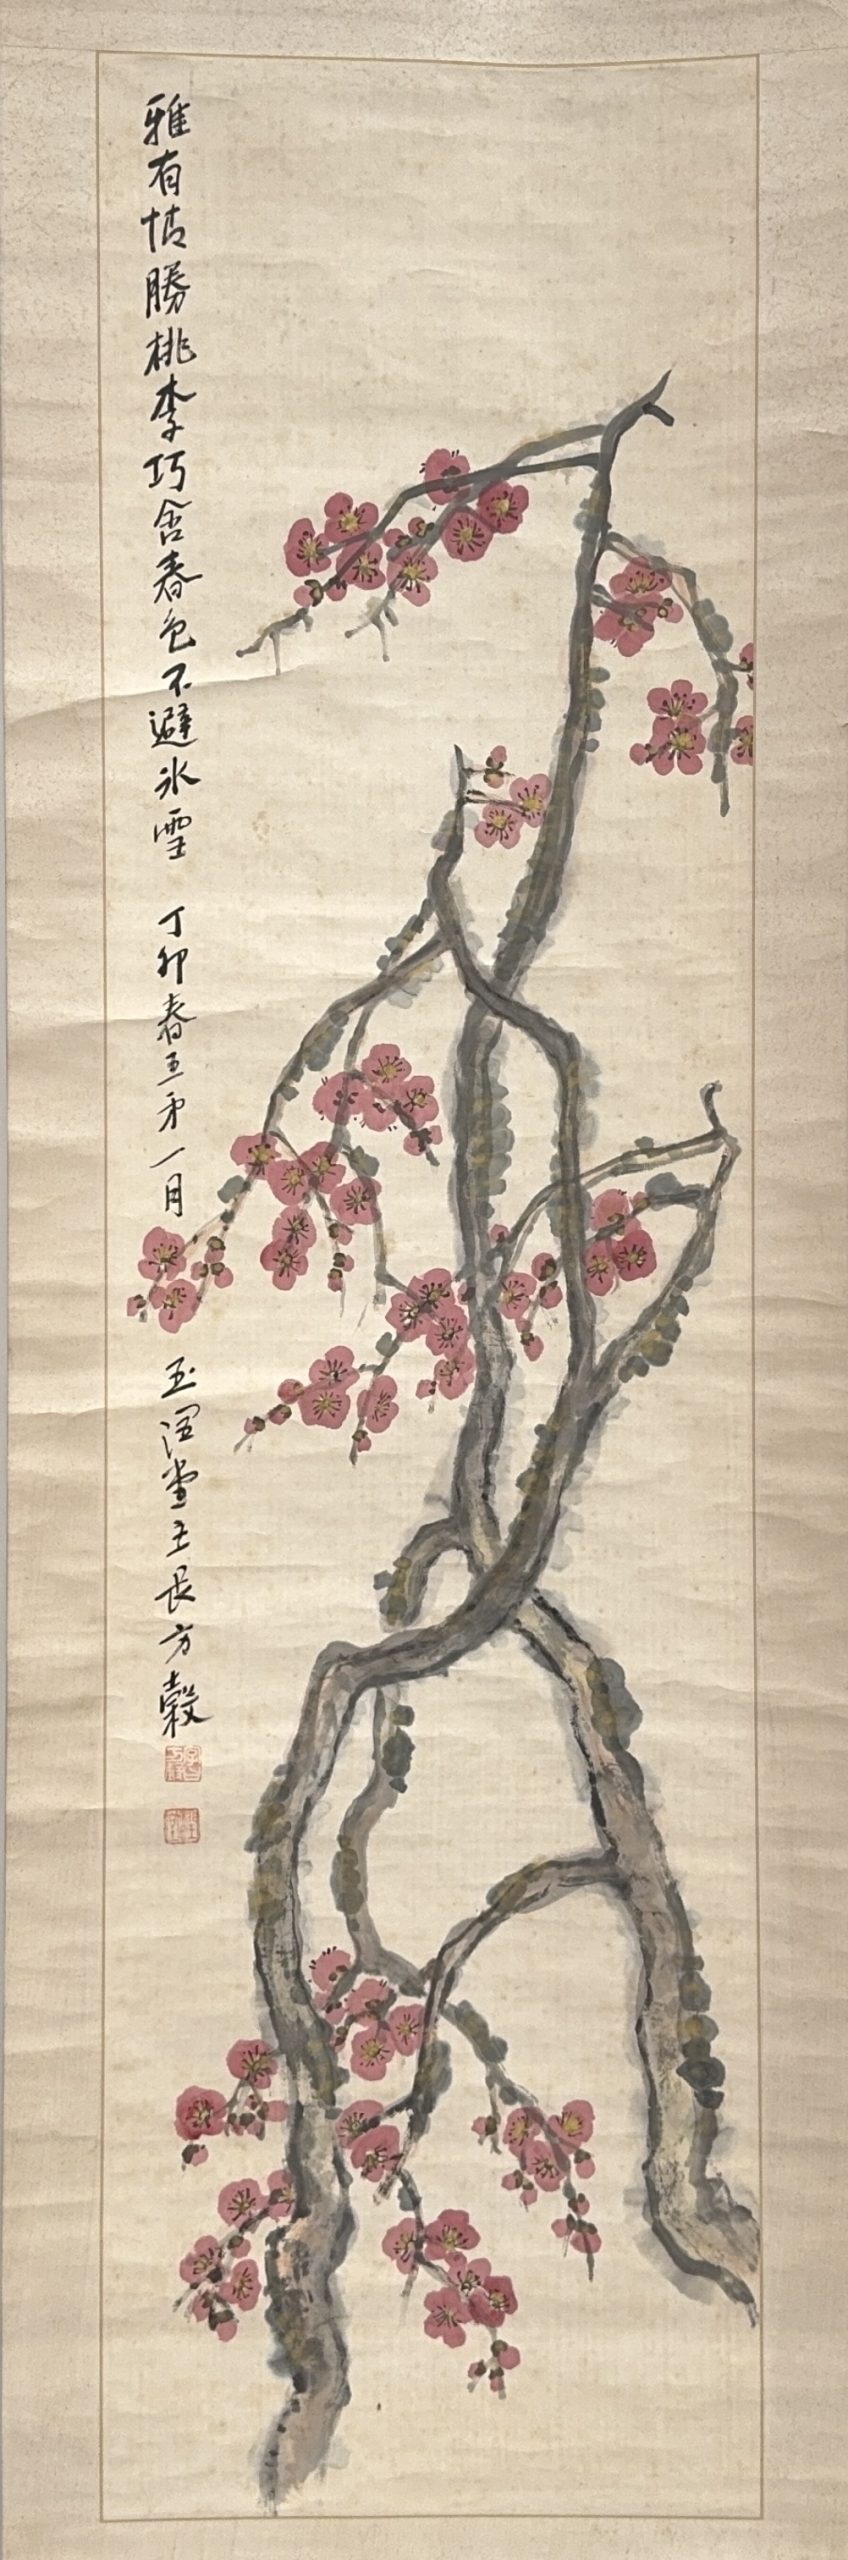 雅有情勝桃李巧含春色不避冰雪　丁卯春王第一月　玉潤堂主長方毅